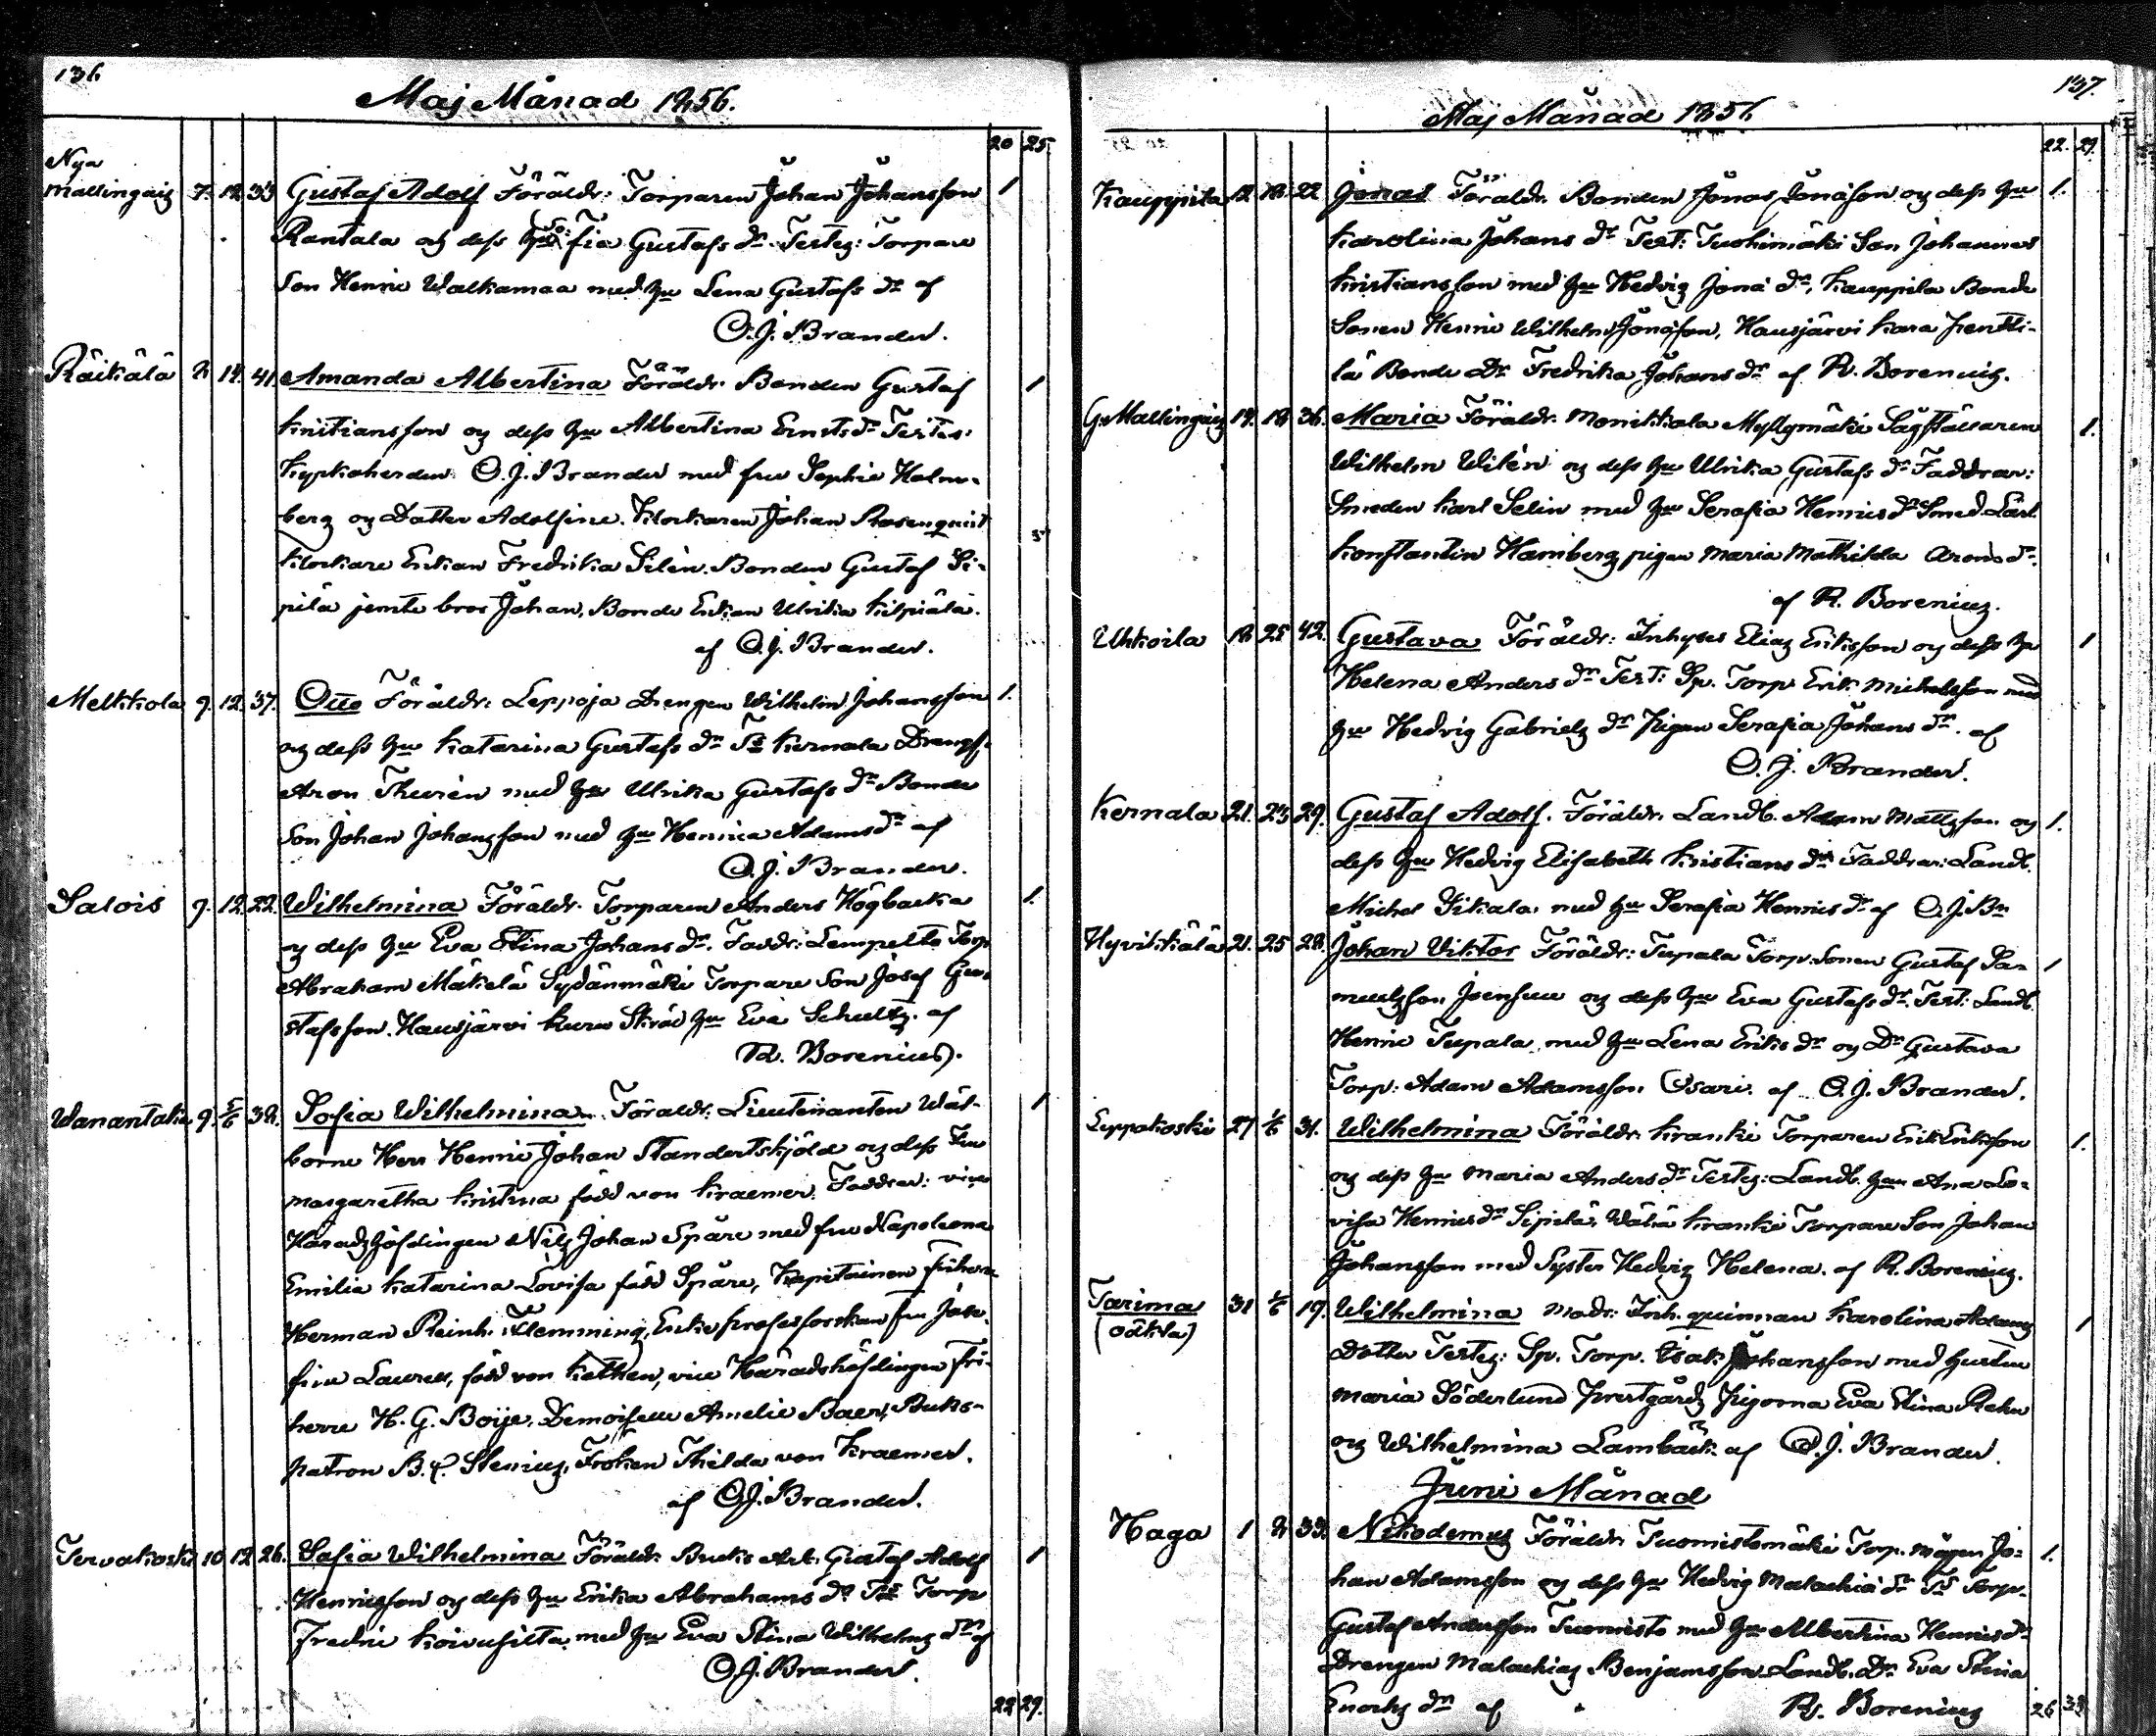 136.
Maj Månad 1856.
20 25.
Nya
Mallingais 7. 12. 33 Gustaf Adolf Föräldr: Torparen Johan Johansson 1
Rantala och dess hu Sofia Gustafs dr. Testes: Torpare
Son Henric Walkamaa med hu Lena Gustafs dr af
O. J. Brander.
Räikälä 8 14. 41. Amanda Albertina Föräldr. Bonden Gustaf 1
Kristiansson og dess hu Albertina Ernsts dr Testes:
Kyrkoherden O. J. Brander med fru Sophie Holm-
berg og Dotter Adolfine. Klockaren Johan Rosenquist
Klockare Enkan Fredrika Silén. Bonden Gustaf Si-
pilä jemte bror Johan, Bonde Enkan Ulrika Kilpiälä.
af O. J. Brander.
Melkkola 9. 12. 37. Otto Föräldr: Leppoja Drengen Wilhelm Johansson 1.
og dess hu Katarina Gustafs dr Ts Kernala Drengs.
Aron Thurén med hu Ulrika Gustafs dr Bonde
Son Johan Johansson med hu Henrica Adams dr af
O. J. Brander.
Salois 9. 12. 22. Wilhelmina Föräldr. Torparen Anders Högbacka 1.
og dess hu Eva Stina Johans dr. Faddr: Lempelto Torp.
Abraham Mäkelä Sydänmäki Torpare Son Josef Gu-
stafsson. Hausjärvi Skräd hu Eva Schultz. af
Rd. Borenius.
Wanantaka 9. 5/6 38. Sofia Wilhelmina. Föräldr: Lieutenanten Wäl- 1
borne Herr Henric Johan Standertskjöld og dess Fru
Margaretha Kristina född von Kraemer. Faddrar: vice
Häradshöfdingen Nils Johan Spåre med fru Napoleona
Emilia Katarina Lovisa född Spåre, Kapitainen Friherre
Herman Reinh. Flemming, Enke professorskan fru Jose-
fine Laurell, född von Kethen, vice Häradshöfdingen Fri-
herre H. G. Boije. Demoiselle Amelie Baer, Bruks-
patron B. Stenius, Fröken Thilda von Kraemer.
af O. J. Brander.
Tervakoski 10 12 26. Sofia Wilhelmina Föräldr. Bruks Arb. Gustaf Adolf 1
Henricsson og dess hu Erika Abrahams dr Ts Torp
Fredric Koivusilta med hu Eva Stina Wilhelms dr af
O. J. Brander.
22 29.
137.
Maj Månad 1856
22. 29.
Kauppila 12 18. 22 Jonas Föräldr. Bonden Jonas Jonasson og dess hu 1.
Karolina Johans dr Test: Tuohimäki Son Johannes
Kristiansson med hu Hedvig Jona dr, Kauppila Bonde
Sonen Henric Wilhelm Jonasson, Hausjärvi Kara Frentti-
lä Bonde Dr Fredrika Johans dr af R. Borenius.
G. Mallingais 14. 18 36. Maria Föräldr. Monikkala Myllymäki Sågställaren 1.
Wilhelm Wilén og dess hu Ulrika Gustafs dr Faddrar:
Smeden Karl Selin med hu Serafia Henrics dr Smed Lärl.
Konstantin Hamberg pigan Maria Mathilda Arons dr.
af R. Borenius.
Uhkoila 18 25 42. Gustava Föräldr: Inhyses Elias Eriksson og dess hu 1
Helena Anders dr Test: Sp. Torp. Erik Michelsson med
hu Hedvig Gabriels dr Pigan Serafia Johans dr. af
O. J. Brander.
Kernala 21. 23 29. Gustaf Adolf. Föräldr. Landb. Adam Mattsson og 1.
dess hu Hedvig Elisabeth Kristians dr Faddrar: Landb.
Michel Sikala med hu Serafia Henrics dr af O. J. Br
Hyvikkälä 21. 25 28. Johan Viktor Föräldr: Tupala Torp. Sonen Gustaf Sa- 1
muelsson Joensuu og dess hu Eva Gustafs dr. Test: Landb.
Henric Tupala med hu Lena Eriks dr og Dr Gustava
Torp: Adam Adamsson Osari. af O. J. Brander.
Leppäkoski 27 1/6 31. Wilhelmina Föräldr. Kranki Torparen Erik Eriksson 1.
og dess hu Maria Anders dr Testes: Landb. hu Ana Lo-
visa Henrics dr Sipilä, Wähä Kranki Torpare Son Johan
Johansson med Syster Hedvig Helena. af R. Borenius.
Tarima 31 1/6 19. Wilhelmina Modr: Inh. quinnan Karolina Adams 1
(Odkla)
Dotter Testes: Sp. Torp. Isak Johansson med hustru
Maria Söderlund Prestgårds Pigorna Eva Stina Rehn
og Wilhelmina Lambäck af O. J. Brander.
Juni Månad
Haga 1 8 33. Nikodemus Föräldr. Tuomistomäki Torp. mågen Jo- 1.
han Adamsson og dess hu Hedvig Malachia dr Ts Torp.
Gustaf Andersson Tuomisto med hu Albertina Henrics dr
Drengen Malachias Benjamsson Landb. Dr Eva Stina
Enochs dr af R. Borenius
26 33